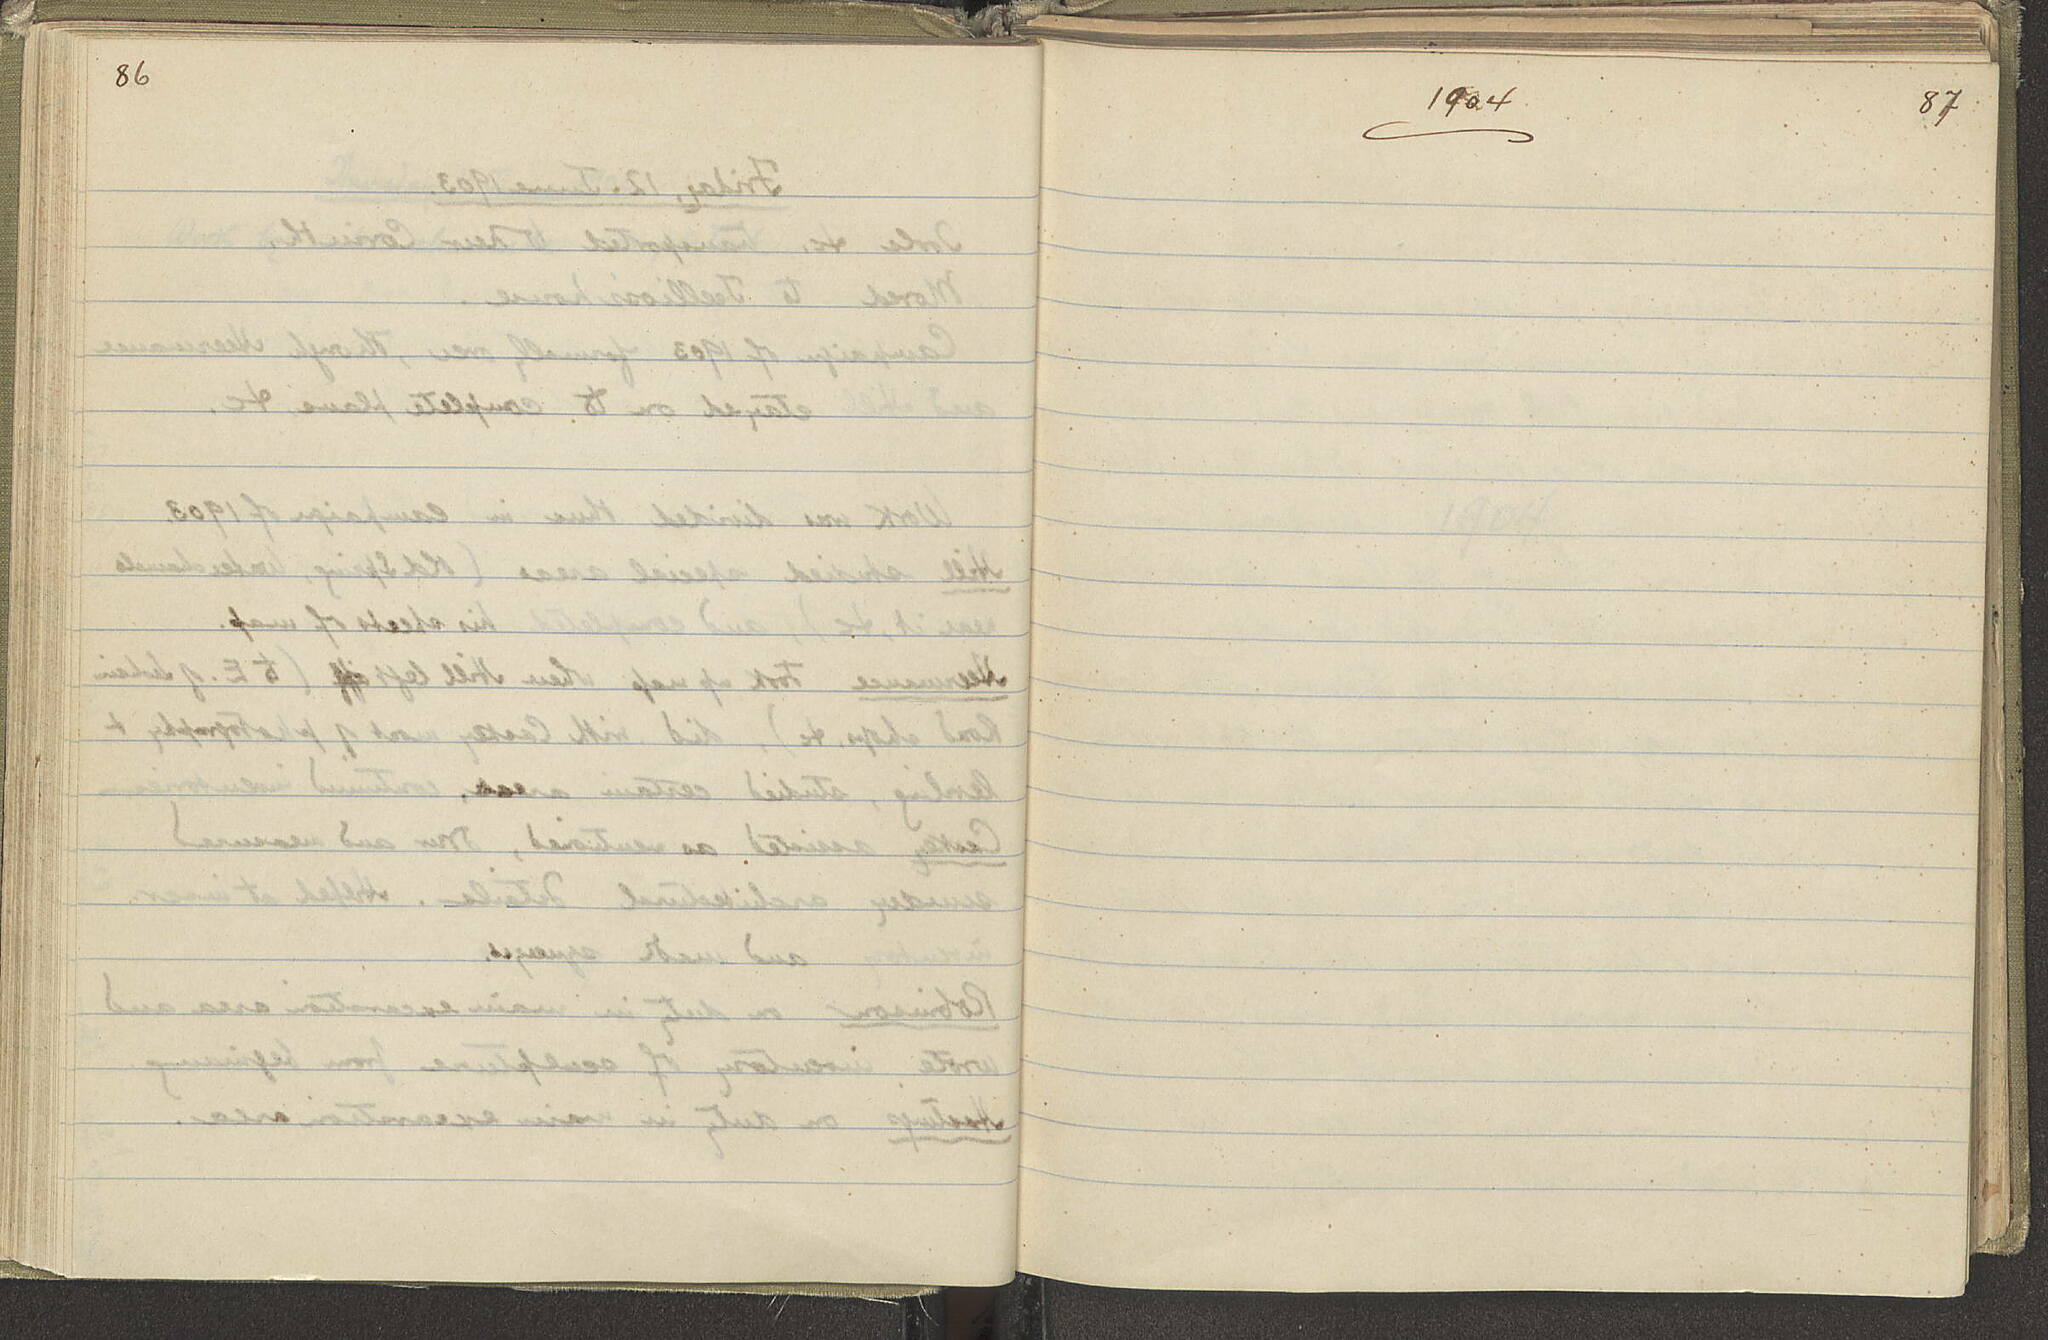 86
Friday, 12. June 1903.
Tools &c. transported to New Corinth,
Moved to house.
Campaign of 1903 formally over, though Heermance
and Hill stayed on to complete plans &c.
Work was divided thus in campaign of 1903.
Hill studied special areas (Old Spring,
near it, &c), and completed his sheets of map.
Heermance took up map when Hill left off (to E. of
Road shops, &c), did with Caskey most of photography &
leveling, studied certain areas, continued inventories
Caskey assisted as mentioned, drew and measured
sundry architectural details. Helped at
inventory and made squeezes.
Robinson on duty in main excavation area and
wrote inventory of sculpture from beginning.
Hastings on duty in main excavation area.
1904
87